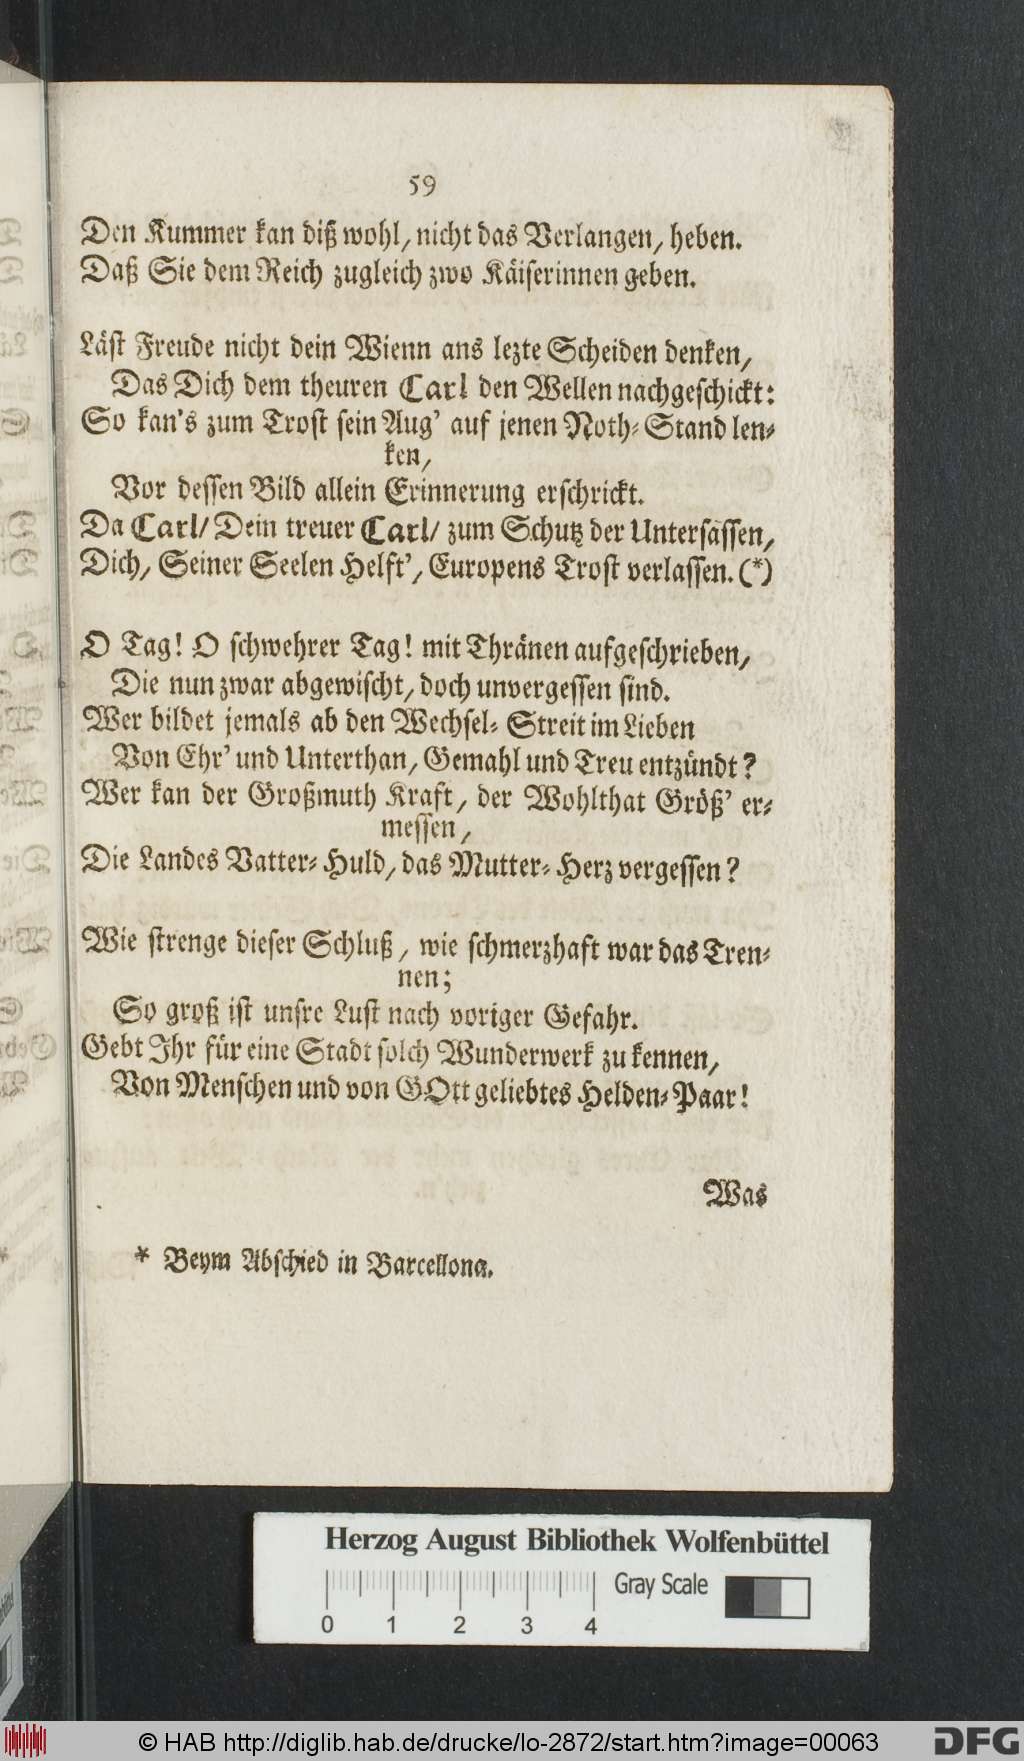 59
Den Kummer kan diß wohl, nicht das Verlangen, heben.
Daß Sie dem Reich zugleich zwo Käiserinnen geben.
Läst Freude nicht dein Wienn ans lezte Scheiden denken,
Das Dich dem theuren Carl den Wellen nachgeschickt:
So kan's zum Trost sein Aug' auf jenen Noth-Stand len-
ken,
Vor dessen Bild allein Erinnerung erschrickt.
Da Carl/ Dein treuer Carl/ zum Schutz der Untersassen,
Dich, Seiner Seelen Helft', Europens Trost verlassen. (*)
O Tag! O schwehrer Tag! mit Thränen aufgeschrieben,
Die nun zwar abgewischt, doch unvergessen sind.
Wer bildet jemals ab den Wechsel-Streit im Lieben
Von Ehr' und Unterthan, Gemahl und Treu entzündt?
Wer kan der Großmuth Kraft, der Wohlthat Größ' er-
messen,
Die Landes Vatter-Huld, das Mutter-Herz vergessen?
Wie strenge dieser Schluß, wie schmerzhaft war das Tren-
nen;
So groß ist unsre Lust nach voriger Gefahr.
Gebt Ihr für eine Stadt solch Wunderwerk zu kennen,
Von Menschen und von GOtt geliebtes Helden-Paar!
Was
* Beym Abschied in Barcellona.
Herzog August Bibliothek Wolfenbüttel
Gray Scale
0 1 2 3 4
© HAB http://diglib.hab.de/drucke/lo-2872/start.htm?image=00063
DFG